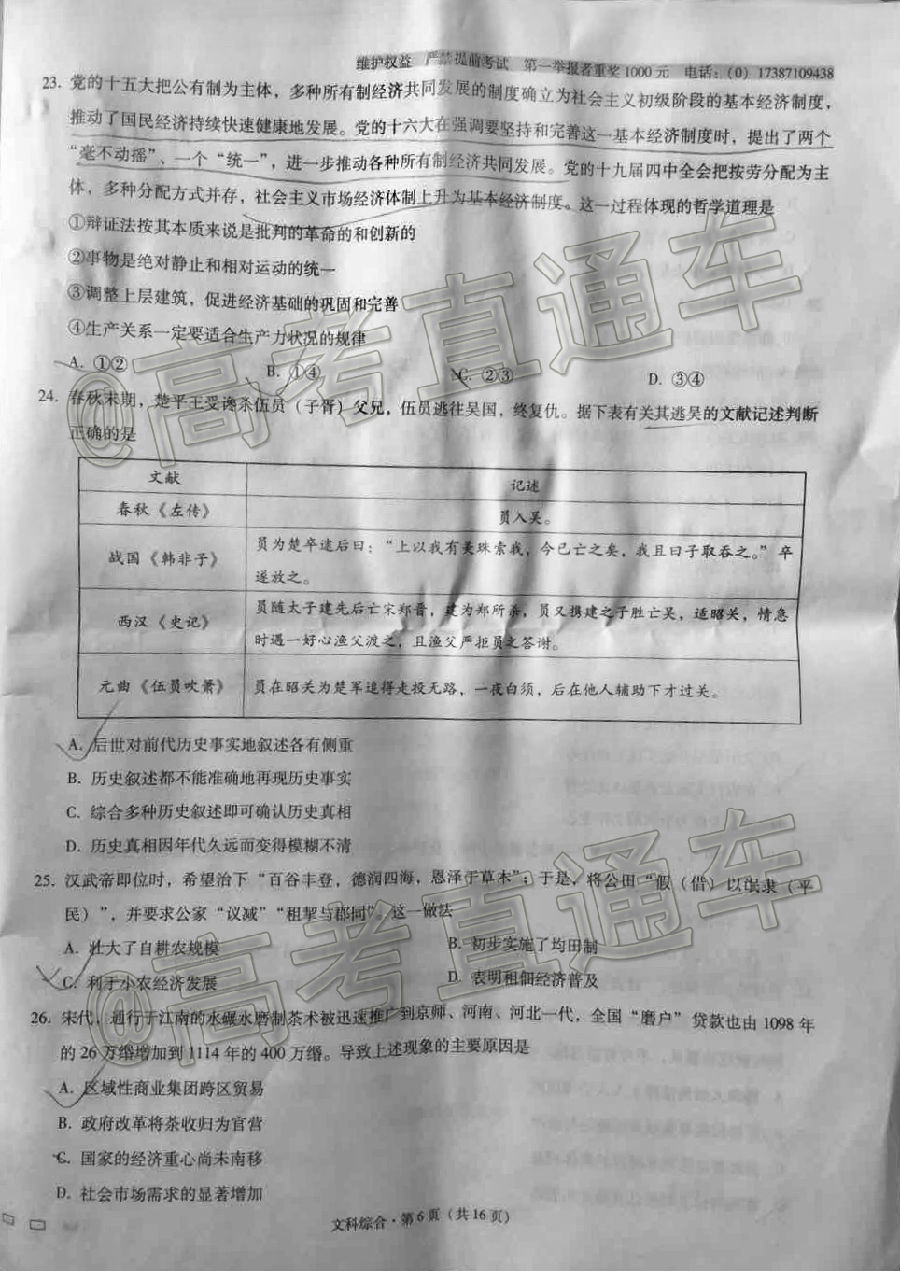 维护权益 严禁提前考试 第一举报者重奖1000元 电话：(0)17387109438
23. 党的十五大把公有制为主体，多种所有制经济共同发展的制度确立为社会主义初级阶段的基本经济制度，
推动了国民经济持续快速健康地发展。党的十六大在强调要坚持和完善这一基本经济制度时，提出了两个
“毫不动摇”、一个“统一”，进一步推动各种所有制经济共同发展。党的十九届四中全会把按劳分配为主
体，多种分配方式并存，社会主义市场经济体制上升为基本经济制度。这一过程体现的哲学道理是
①辩证法按其本质来说是批判的革命的和创新的
②事物是绝对静止和相对运动的统一
③调整上层建筑，促进经济基础的巩固和完善
④生产关系一定要适合生产力状况的规律
A. ①② B. ①④ C. ②③ D. ③④
24. 春秋末期，楚平王受谗杀伍员（子胥）父兄，伍员逃往吴国，终复仇。据下表有关其逃吴的文献记述判断
正确的是
文献 记述
春秋《左传》 员入吴。
战国《韩非子》 员为楚卒逮后曰：“上以我有美珠索我，今已亡之矣，我且曰子取吞之。”卒
遂放之。
西汉《史记》 员随太子建先后亡宋郑晋，建为郑所杀，员又携建之子胜亡吴，适昭关，情急
时遇一好心渔父渡之，且渔父严拒员之答谢。
元曲《伍员吹箫》 员在昭关为楚军追得走投无路，一夜白须，后在他人辅助下才过关。
A. 后世对前代历史事实地叙述各有侧重
B. 历史叙述都不能准确地再现历史事实
C. 综合多种历史叙述即可确认历史真相
D. 历史真相因年代久远而变得模糊不清
25. 汉武帝即位时，希望治下“百谷丰登，德润四海，恩泽于草木”；于是，将公田“假（借）以氓隶（平
民）”，并要求公家“议减”“租挈与郡同”。这一做法
A. 壮大了自耕农规模 B. 初步实施了均田制
C. 利于小农经济发展 D. 表明租佃经济普及
26. 宋代，通行于江南的水碾水磨制茶术被迅速推广到京师、河南、河北一代，全国“磨户”贷款也由1098年
的26万缗增加到1114年的400万缗。导致上述现象的主要原因是
A. 区域性商业集团跨区贸易
B. 政府改革将茶收归为官营
C. 国家的经济重心尚未南移
D. 社会市场需求的显著增加
文科综合·第6页（共16页）
@高考直通车
@高考直通车